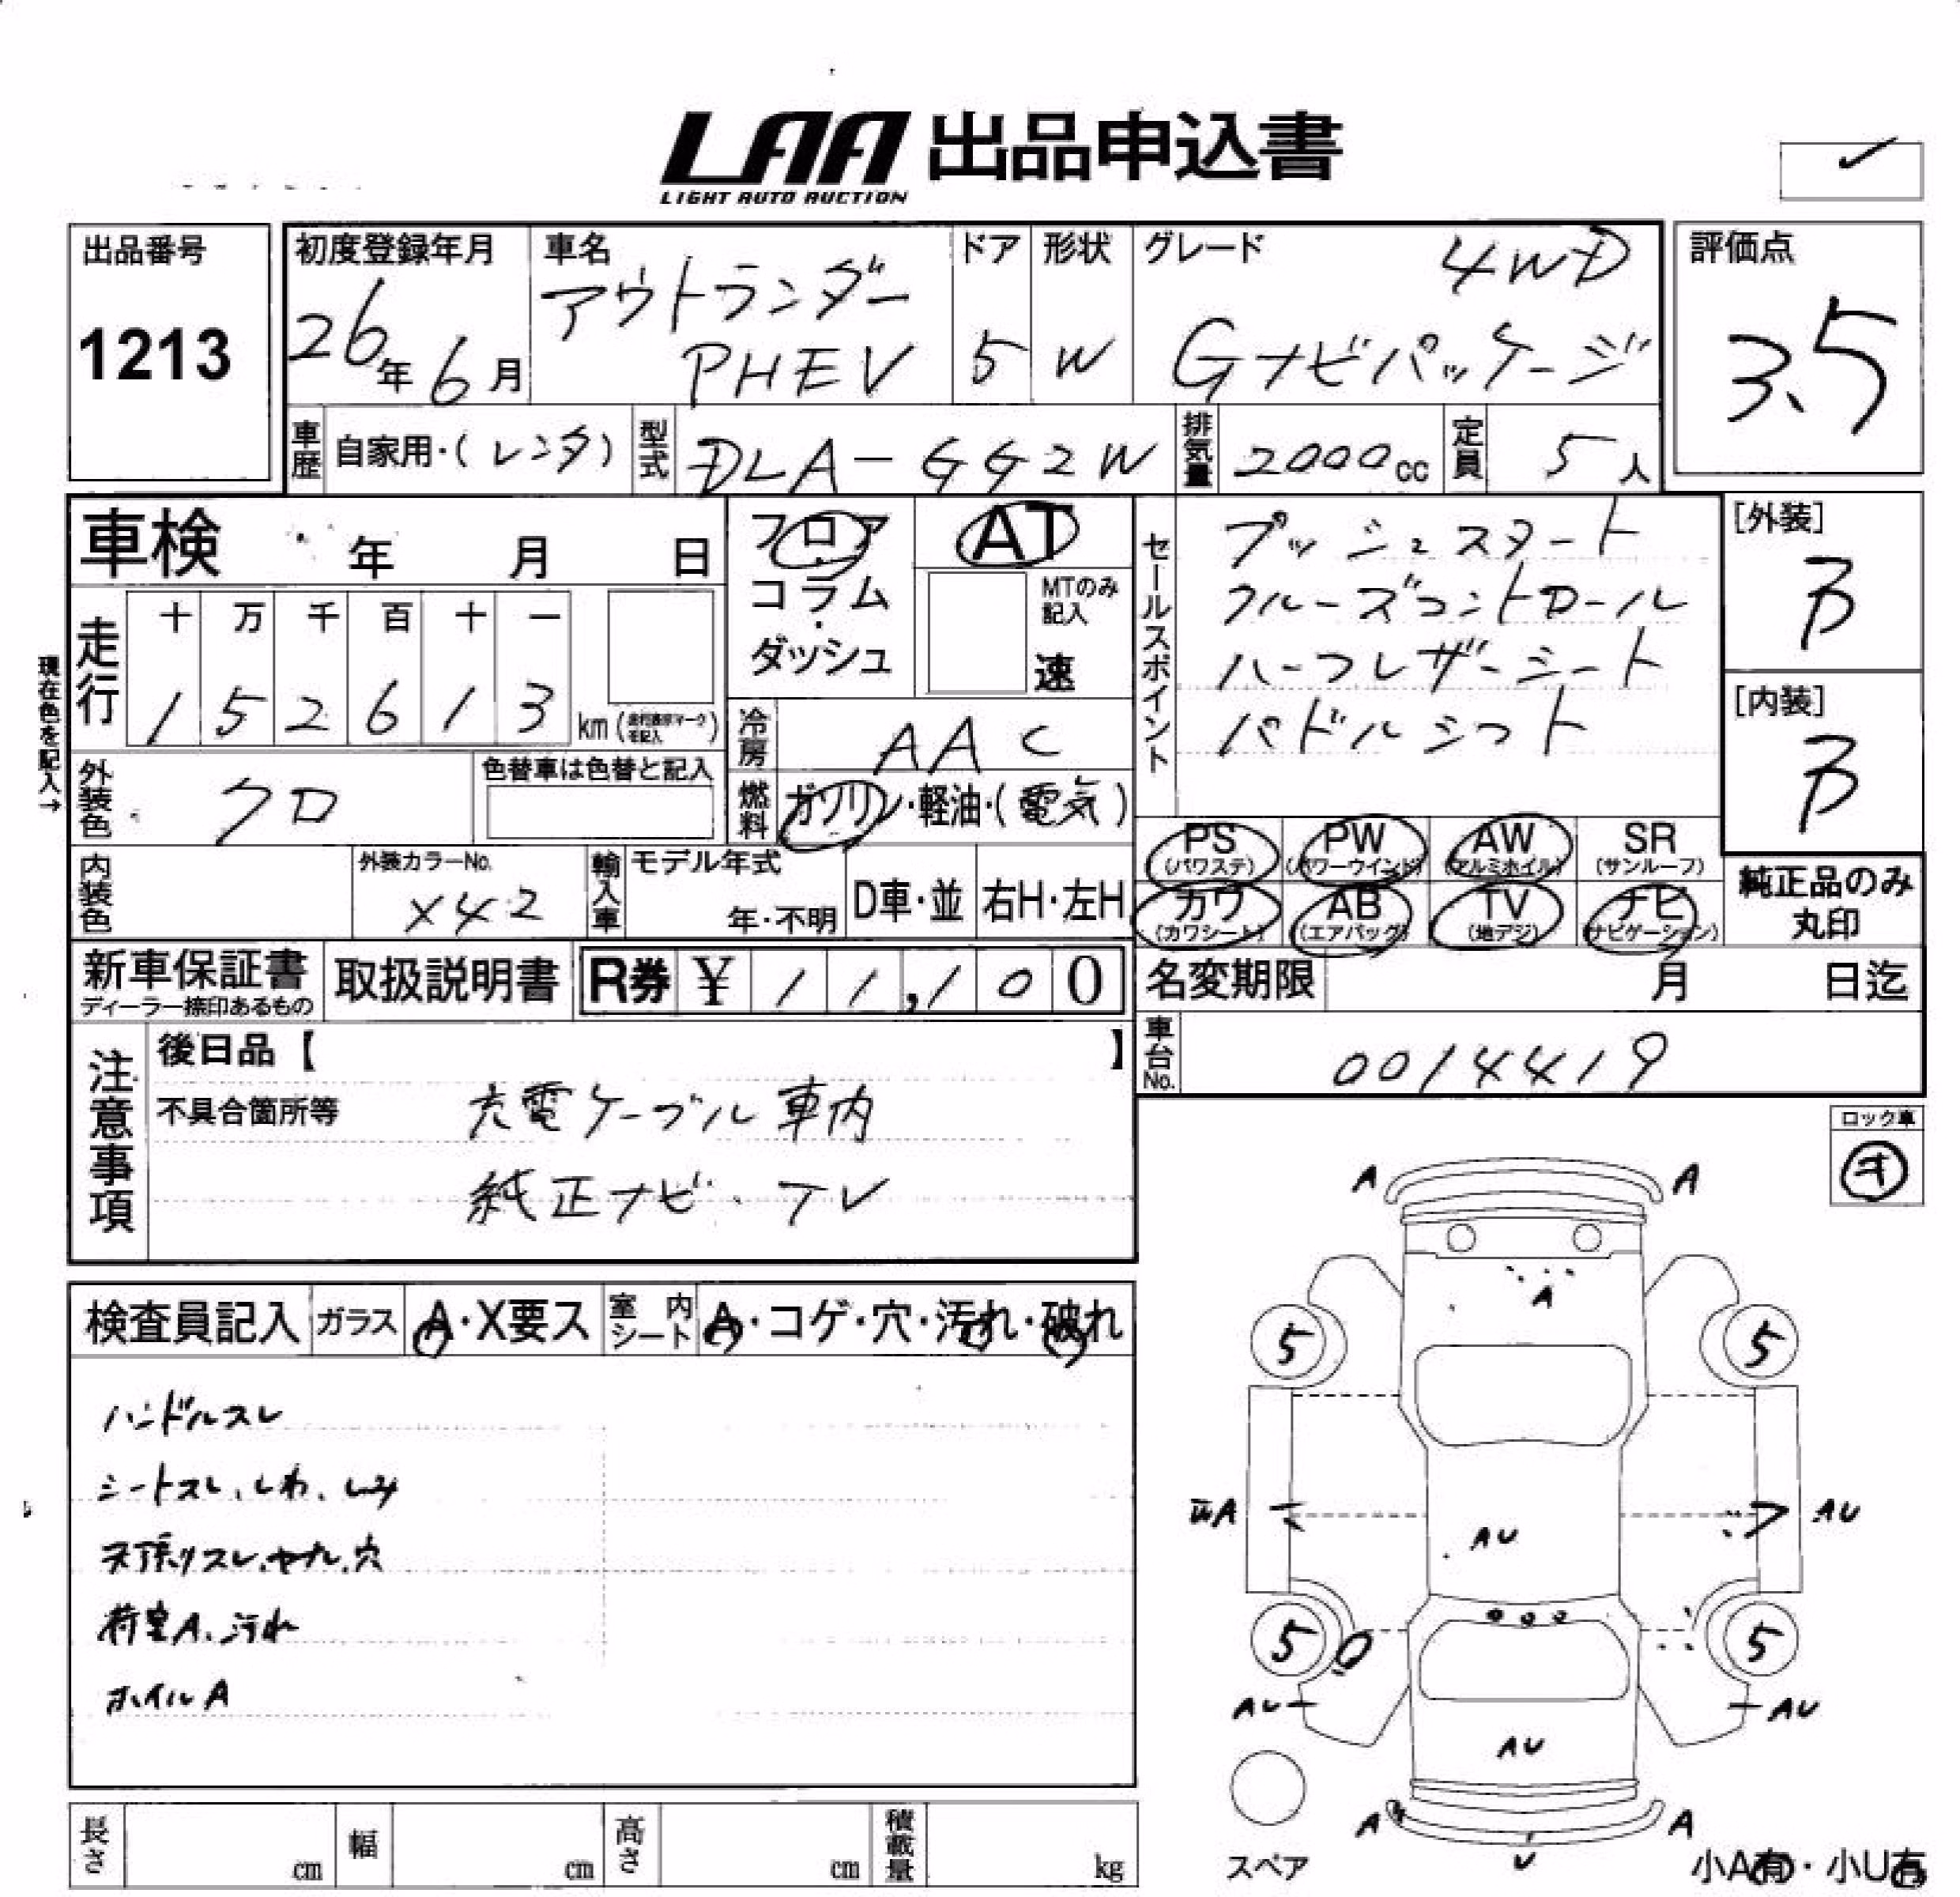 LAA 出品申込書
LIGHT AUTO AUCTION
出品番号
1213
初度登録年月
26年6月
車名
アウトランダー
PHEV
ドア
5
形状
W
グレード
4WD
Gナビパッケージ
評価点
3.5
車歴 自家用・(レンタ)
型式 DLA-GG2W
排気量 2000cc
定員 5人
車検 年 月 日
フロア・コラム・ダッシュ
AT
MTのみ記入
速
セールスポイント
プッシュスタート
クルーズコントロール
ハーフレザーシート
パドルシフト
[外装]
B
[内装]
B
現在色を記入→
走行
十 万 千 百 十 一
1 5 2 6 1 3 km
冷房 AAC
外装色 クロ
色替車は色替と記入
燃料 ガソリン・軽油・(電気)
PS (パワステ)
PW (パワーウインド)
AW (アルミホイル)
SR (サンルーフ)
カワ (カワシート)
AB (エアバッグ)
TV (地デジ)
ナビ (ナビゲーション)
純正品のみ
丸印
内装色
外装カラーNo.
X42
輸入車 モデル年式
年・不明
D車・並
右H・左H
新車保証書
ディーラー捺印あるもの
取扱説明書
R券 ¥ 11,100
名変期限 月 日迄
車台No. 0014419
注意事項
後日品【 】
不具合箇所等
充電ケーブル車内
純正ナビ・TV
ロック車
検査員記入
ガラス A・X要ス
室内シート A・コゲ・穴・汚れ・破れ
ハンドルスレ
シートスレ、しわ、しみ
天張りスレ、ヤブレ、穴
荷室A、汚れ
ホイルA
A A
A
5 5
A AU
AU
5 5
AU AU
AU
A A
U
スペア
小A有・小U有
長さ cm
幅 cm
高さ cm
積載量 kg